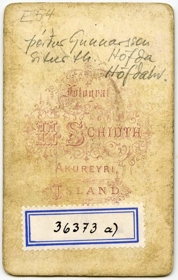 E54
Pétur Gunnarsson
Höfða
Höfðahv.
Fotograf
H SCHIÖTH
AKUREYRI,
ISLAND
36373 a)